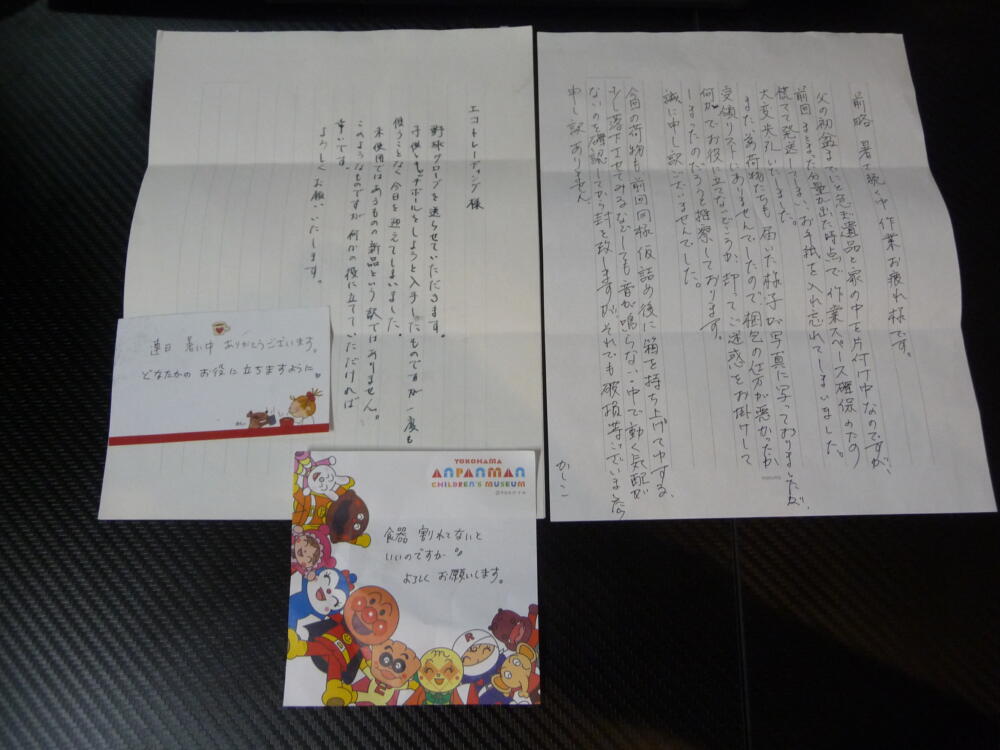 前略 暑さ続く中 作業お疲れ様です。
父の初盆までにと急ぎ遺品と家の中を片付け中なのですが、
前回まとまった分量が出た時点で作業スペース確保のため
慌てて発送してしまい、お手紙を入れ忘れてしまいました。
大変失礼いたしました。
また、当荷物たちも届いた様子が写真に写っておりましたが、
受領リストにありませんでしたので、梱包の仕方が悪かったか
何かでお役に立てないどころか、却ってご迷惑をお掛けして
しまったのだろうと推察しております。
誠に申し訳ございませんでした。
今回の荷物も前回同様 仮詰め後に箱を持ち上げてゆする、
少し落下させてみるなどしても音が鳴らない・中で動く気配が
ないのを確認してから封を致しますが、それでも破損等ございましたら
申し訳ありません。
かしこ
エコトレーディング様
野球グローブを送らせていただきます。
子供とキャッチボールをしようと入手したものですが 一度も
使うことなく今日を迎えてしまいました。
未使用ではあるものの新品という訳ではありません。
このようなものですが 何かの役に立てていただければ
幸いです。
よろしくお願いいたします。
連日 暑い中 ありがとうございます。
どなたかの お役に立ちますように。
YOKOHAMA
ANPANMAN
CHILDREN'S MUSEUM
食器 割れてないと
いいのですが
よろしく お願いします。